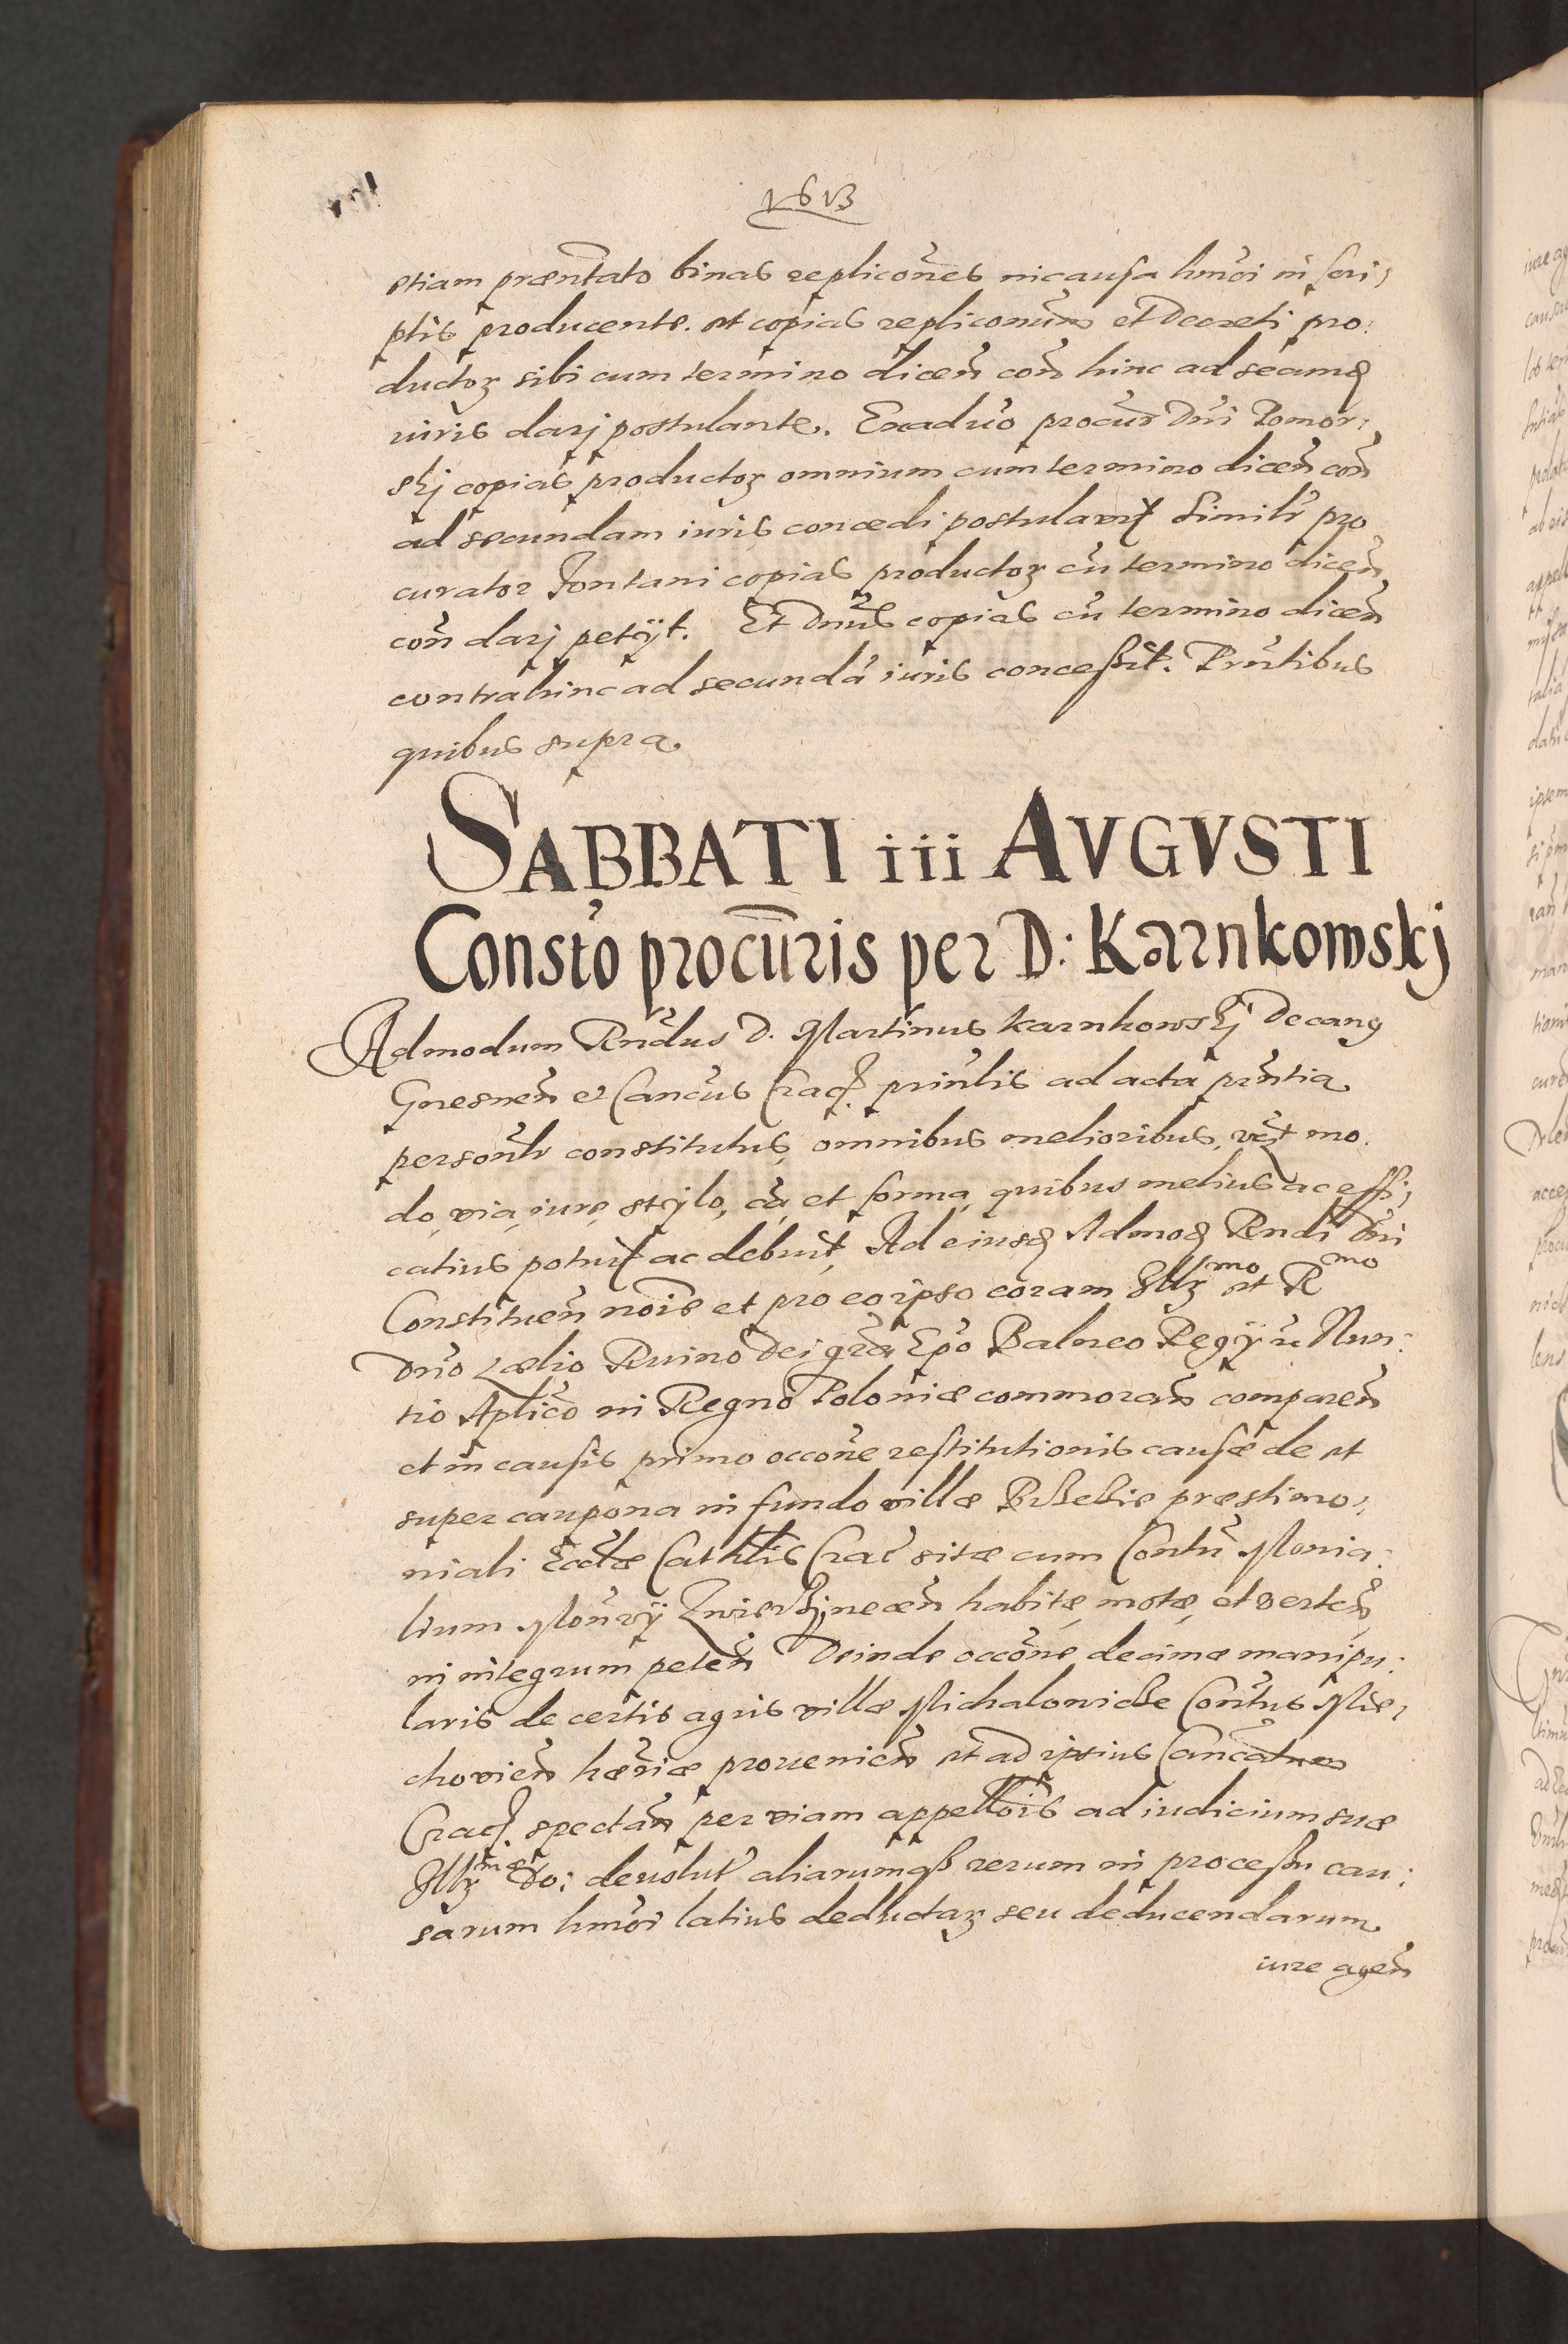 1613
etiam præntato binas replicones in causa hmoi in scri,
ptis producente. et copias repliconum et Decreti pro:
ductoʒ sibi cum termino dicen con hinc ad secundã
iuris darj postulante. Ex aduo procur Dni Pomor:
skj copias productoʒ omnium cum termino dicen con
ad secundam iuris concedi postulavit Similr pro
curator Fontani copias productoʒ cũ termino dicen
con darj petijt. Et Dnus copias cũ termino dicen
contra hinc ad secundã iuris conceßit. Pruntibus
quibus supra
SABBATI iii AVGVSTI
Consto procuris per D: Karnkowskj
Admodum Rndus D. Martinus Karnkowskj Decang
Gnesnen et Cancus Crac. prinlis ad acta prntia
personlr constitutus, omnibus melioribus, mo
do, via, iure, stylo, cã, et forma, quibus melius ac effi,
catius potuit ac debuit, Ad eiusd Admod Rndi Dni
Constituen nois et pro eo ipso coram Illʒmo et Rmo
Dno Lælio Ruino Dei gra Epo Balneo Regij Nun:
tio Aplico in Regno Poloniæ commoran comparen
et in causis primo occone restitutionis causæ de et
super caupona in fundo villæ præstimo,
niali Ecclæ Cathlis Crac sitæ cum Contu Monia:
lium Monrij Zwierzynecen habitæ, motæ, et verten,
in integrum peten Deinde occone decimæ manipu:
laris de certis agris villæ Michalowicze Contus Mie,
chovien hæriæ provenien et ad ipsius Cancatum
Crac. spectan per viam appellois ad iudicium suæ
Illʒmæ Do: devolut aliarumqß rerum in proceßu cau:
sarum hmoi latius deductaʒ seu deducendarum
iure agen